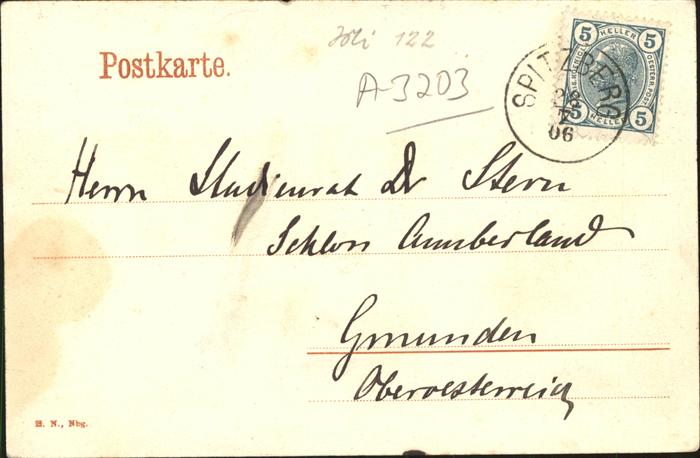 Postkarte.
122
A-3203
5 HELLER 5
5 HELLER 5
SPITZBERG
06
Herrn Studienrat Dr Stern
Schloss Cumberland
Gmunden
Oberoesterreich
B. N., Nbg.